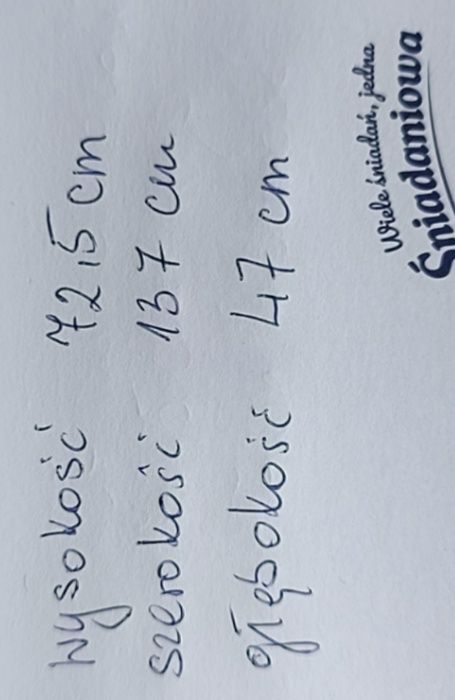 wysokość 72,5 cm
szerokość 137 cm
głębokość 47 cm
Wiele śniadań, jedna
Śniadaniowa